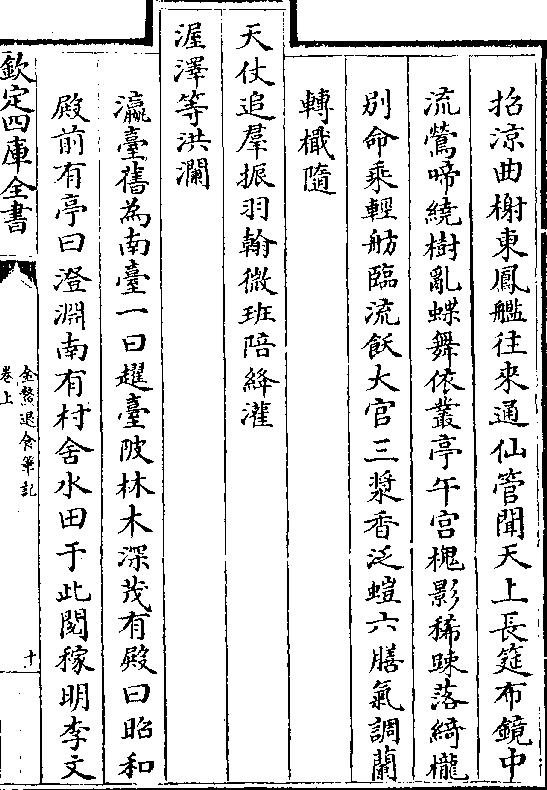 招涼曲榭東鳳艦往來通仙管聞天上長筵布鏡中
流鶯啼繞樹亂蝶舞依叢亭午宫槐影稀踈落綺櫳
别命乘輕舫臨流飫大官三漿香泛螘六膳氣調蘭
轉檝隨
天仗追羣振羽翰微班陪絳灌
渥澤等洪瀾
瀛臺舊為南臺一曰趯臺陂林木深茂有殿曰昭和
殿前有亭曰澄淵南有村舍水田于此閱稼明李文
欽定四庫全書
金鰲退食筆記
卷上
十